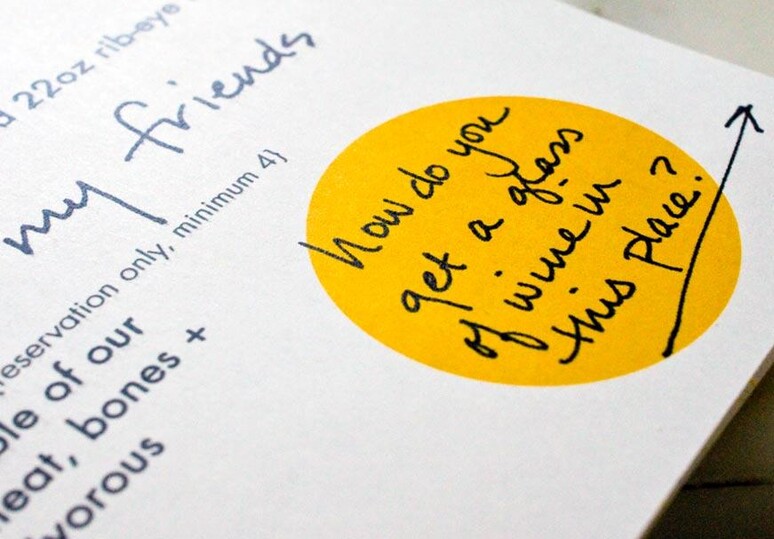 22oz rib-eye
my friends
reservation only, minimum 4}
of our
bones +
how do you
get a glass
of wine in
this place?